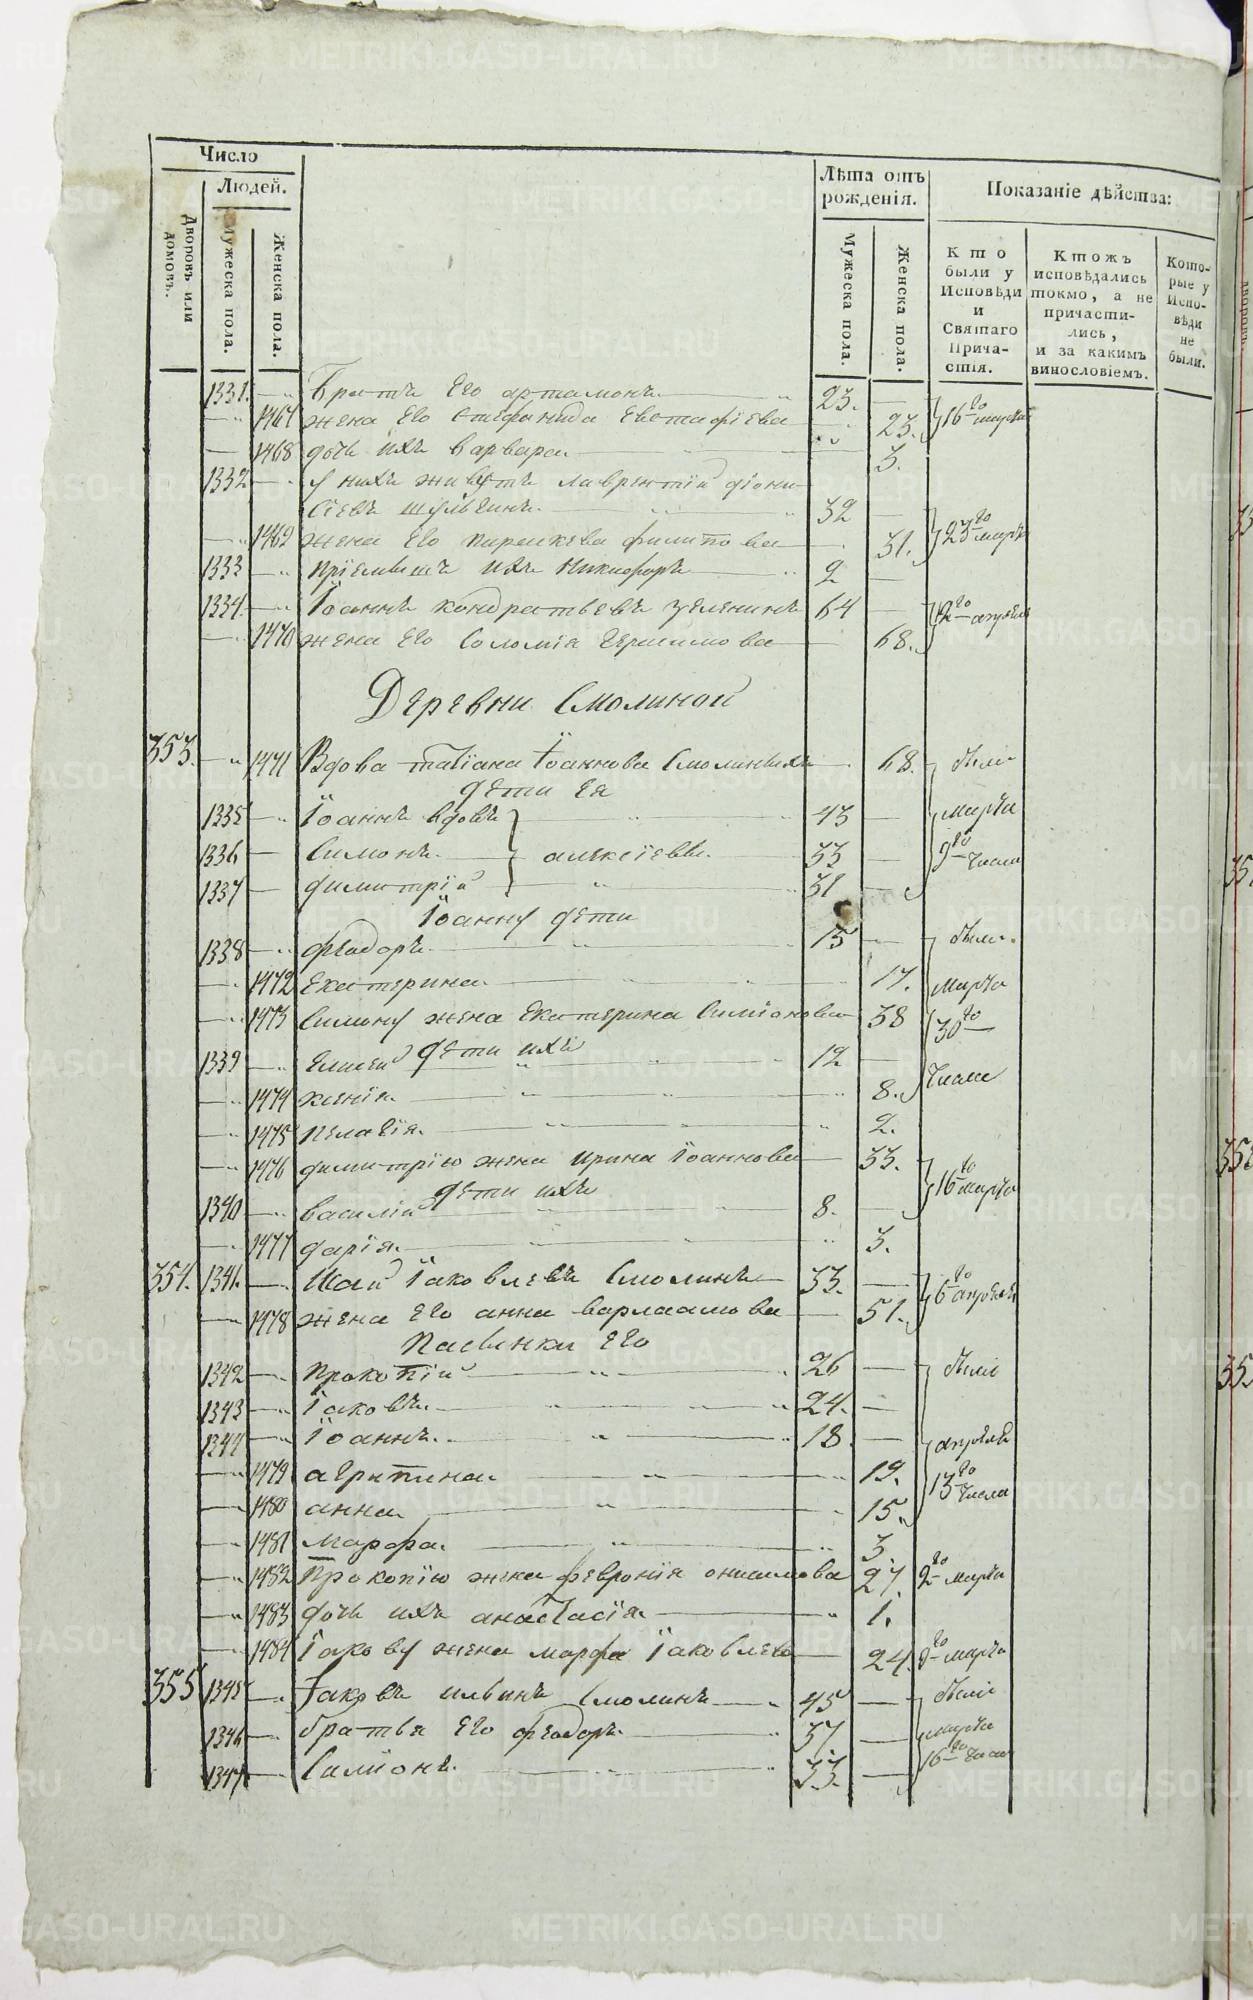 Число
Людей.
Дворовъ или домовъ.
Мужеска пола.
Женска пола.
Лѣта отъ рожденія.
Мужеска пола.
Женска пола.
Показаніе дѣйства:
Кто были у Исповѣди и Святаго Причастія.
Ктожъ исповѣдались токмо, а не причастились, и за какимъ винословіемъ.
Которые у Исповѣди не были.
1331. братъ Его артамонъ 23. 16го марта
1467 жена Его Стефанида Евстафіева 23.
1468 дочь ихъ варвара 3.
1332 у нихъ живетъ лаврентій діони
сіевъ шульгинъ 32 23го марта
1469 жена Его параскева филипова 31.
1333 пріемышъ ихъ Никифоръ 2
1334 Іоаннъ кондратьевъ зеленинъ 64 12го апреля
1470 жена Его Соломія Герасимова 68.
Деревни Смолиной
353. 1471 Вдова татіана Іоаннова Смолиныхъ 68. были
дети Ея
1335 Іоаннъ вдовъ 43 марта
1336 Симонъ алексіевы 33 9го числа
1337 димитрій 31
Іоанну дети
1338 феодоръ 15 были
1472 Екатерина 17. марта
1473 Симону жена Екатерина Симіонова 38 30го
дети ихъ
1339 Елисей 12
1474 ксенія 8. числа
1475 пелагія 2.
1476 димитрію жена ирина Іоаннова 33. 16го марта
дети ихъ
1340 василій 8.
1477 дарія 3.
354. 1341. Исай Іаковлевъ Смолинъ 33. 6го апреля
1478 жена Его анна варлаамова 51.
Пасынки Его
1342 прокопій 26 были
1343 Іаковъ 24.
1344 Іоаннъ 18 апреля
1479 агрипина 19. 13го числа
1480 анна 15.
1481 марфа 3
1482 Прокопію жена февронія онисимова 27. 2го марта
1483 дочь ихъ анастасія 1.
1484 Іакову жена марфа Іаковлева 24. 9го марта
355 1345 Іаковъ ильинъ Смолинъ 45 были
1346 братья Его феодоръ 37 марта
1347 Симіонъ 33. 16го числа